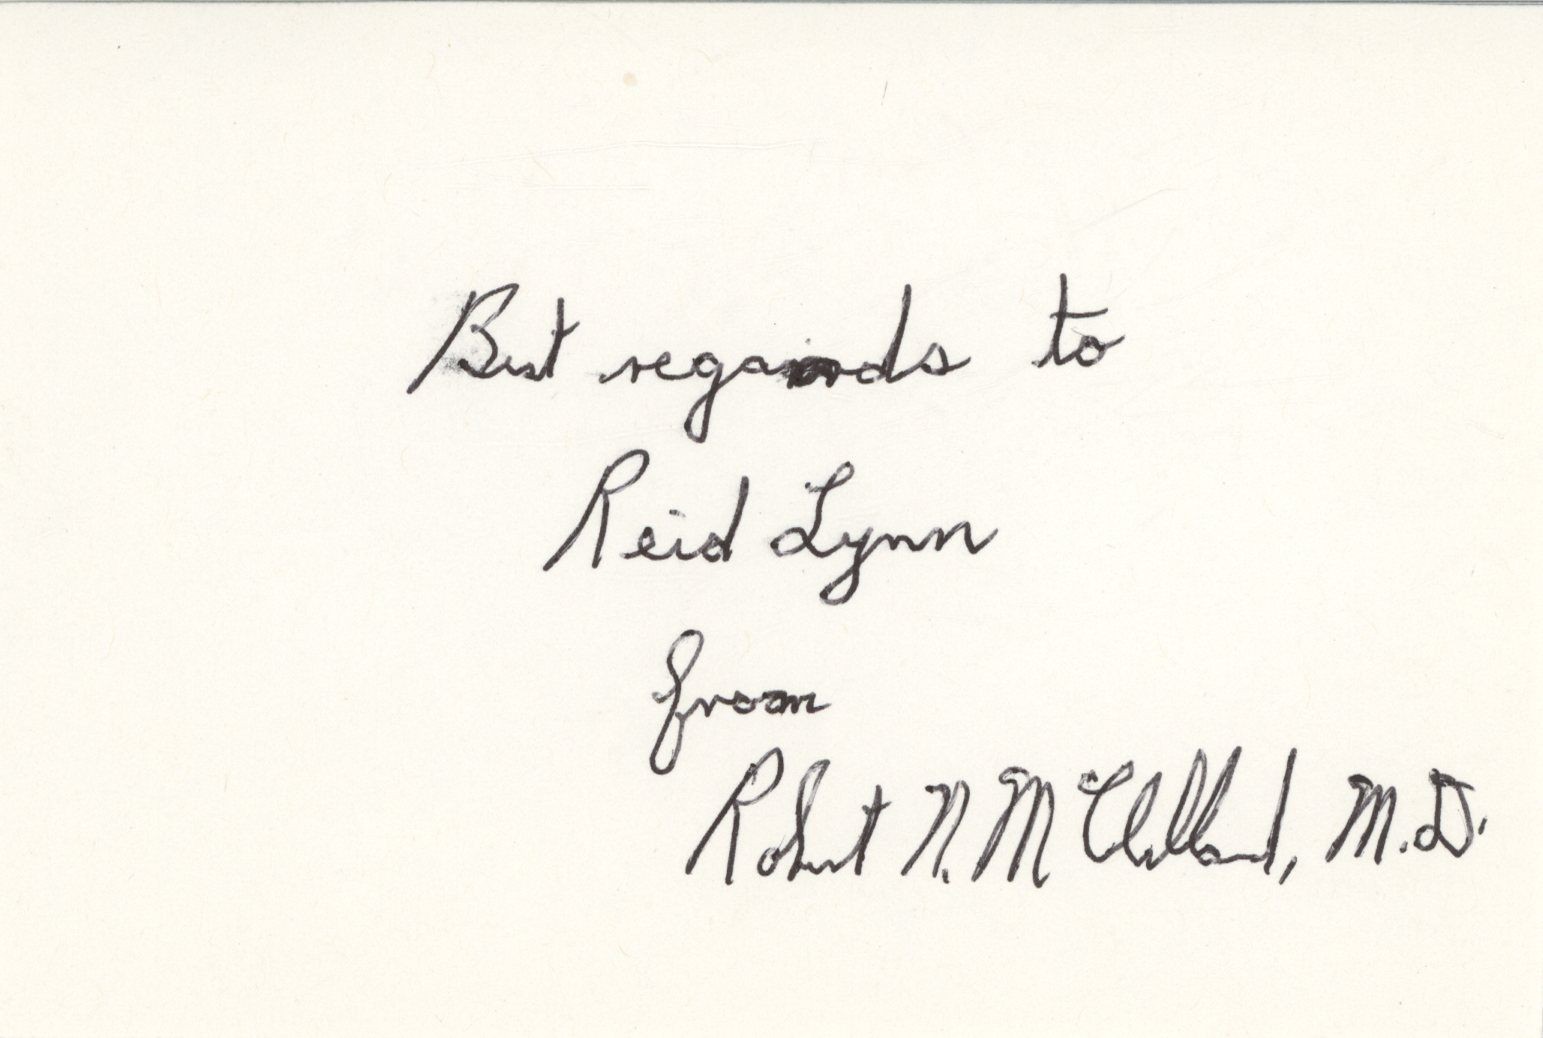 Best regards to
Reid Lynn
from
Robert N. McClelland, M.D.